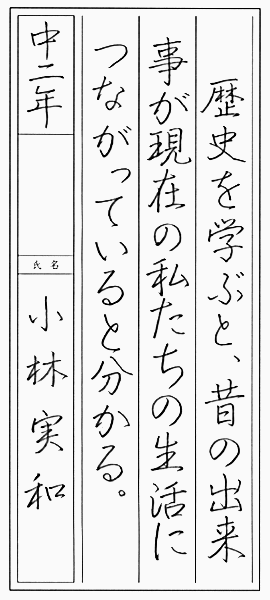 歴史を学ぶと、昔の出来
事が現在の私たちの生活に
つながっていると分かる。
中二年
氏名
小林実和